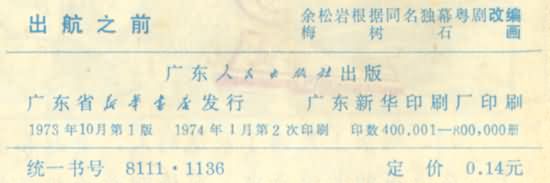 出航之前
余松岩根据同名独幕粤剧改编
梅树石画
广东人民出版社出版
广东省新华书店发行 广东新华印刷厂印刷
1973年10月第1版 1974年1月第2次印刷 印数400,001—800,000册
统一书号 8111·1136 定价 0.14元